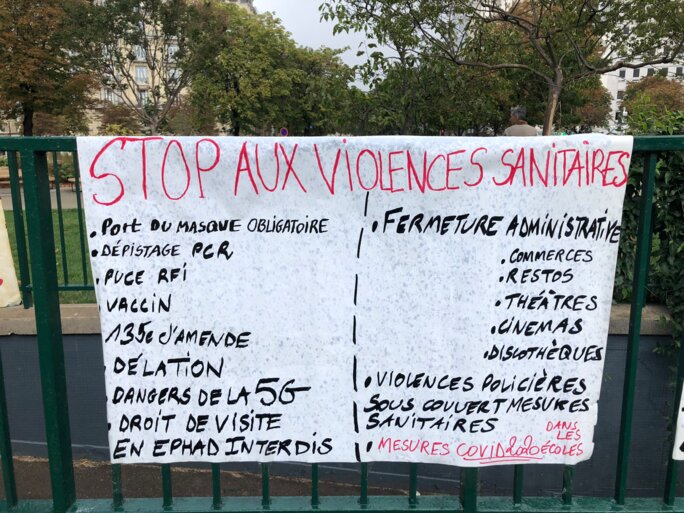 STOP AUX VIOLENCES SANITAIRES
• PORT DU MASQUE OBLIGATOIRE
• DÉPISTAGE PCR
• PUCE RFI
• VACCIN
• 135€ D'AMENDE
• DÉLATION
• DANGERS DE LA 5G
• DROIT DE VISITE
EN EPHAD INTERDIS
• FERMETURE ADMINISTRATIVE
• COMMERCES
• RESTOS
• THÉÂTRES
• CINEMAS
• DISCOTHÈQUES
• VIOLENCES POLICIÈRES
SOUS COUVERT MESURES
SANITAIRES
• MESURES COVID 2020 DANS LES ÉCOLES